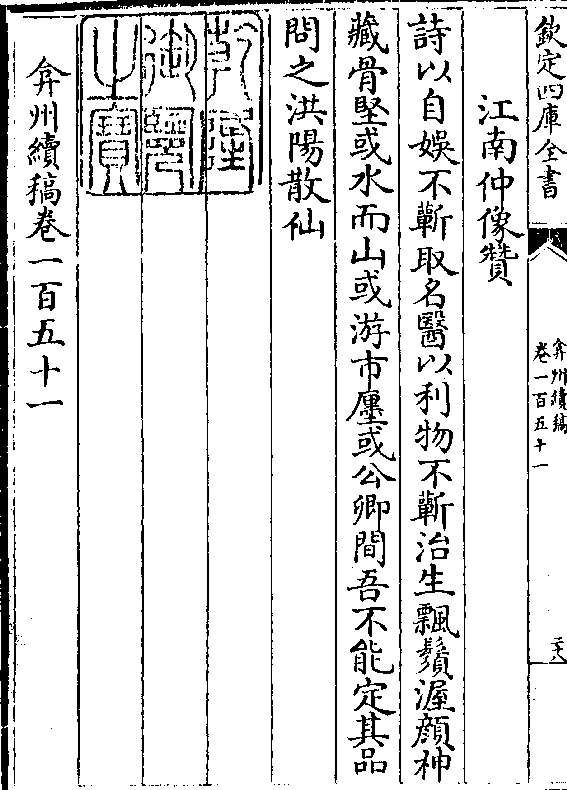 欽定四庫全書
弇州續稿
卷一百五十一
二十八
江南仲像贊
詩以自娛不蘄取名醫以利物不蘄治生飄鬚渥顔神
藏骨堅或水而山或游市廛或公卿間吾不能定其品
問之洪陽散仙
乾隆
御覽
之寶
弇州續稿卷一百五十一